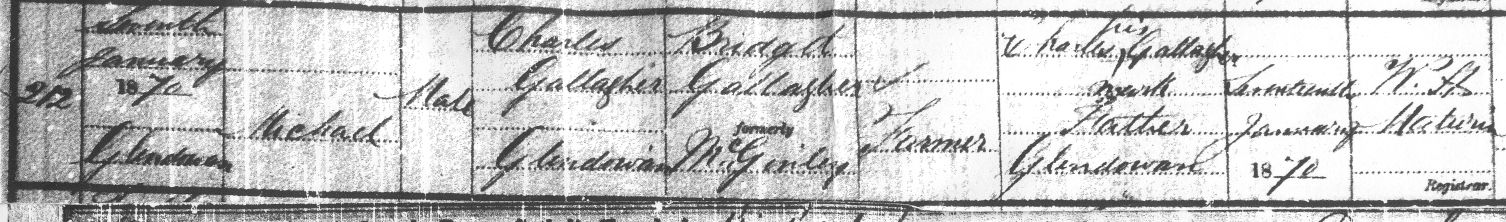 212
Seventh
January
1870
Glendowan
Michael
Male
Charles
Gallagher
Glendowan
Bridget
Gallagher
formerly
McGinley
Farmer
his
Charles X Gallagher
mark
Father
Glendowan
Seventeenth
January
1870
W. H.
Registrar.